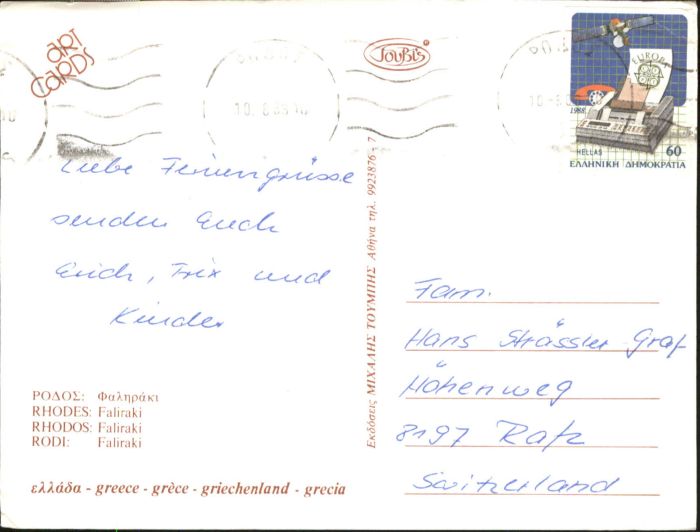 ART
CARDS
Toubi's
10.-8.88.10
EUROPA
1988
HELLAS 60
ΕΛΛΗΝΙΚΗ ΔΗΜΟΚΡΑΤΙΑ
Liebe Feriengrüsse
senden Euch
Erich, Trix und
Kinder
Εκδόσεις ΜΙΧΑΛΗΣ ΤΟΥΜΠΗΣ Αθήνα τηλ. 9923876 - 7
Fam.
Hans Strässler Graf
Höhenweg
8197 Rafz
Switzerland
ΡΟΔΟΣ: Φαληράκι
RHODES: Faliraki
RHODOS: Faliraki
RODI: Faliraki
ελλάδα - greece - grèce - griechenland - grecia